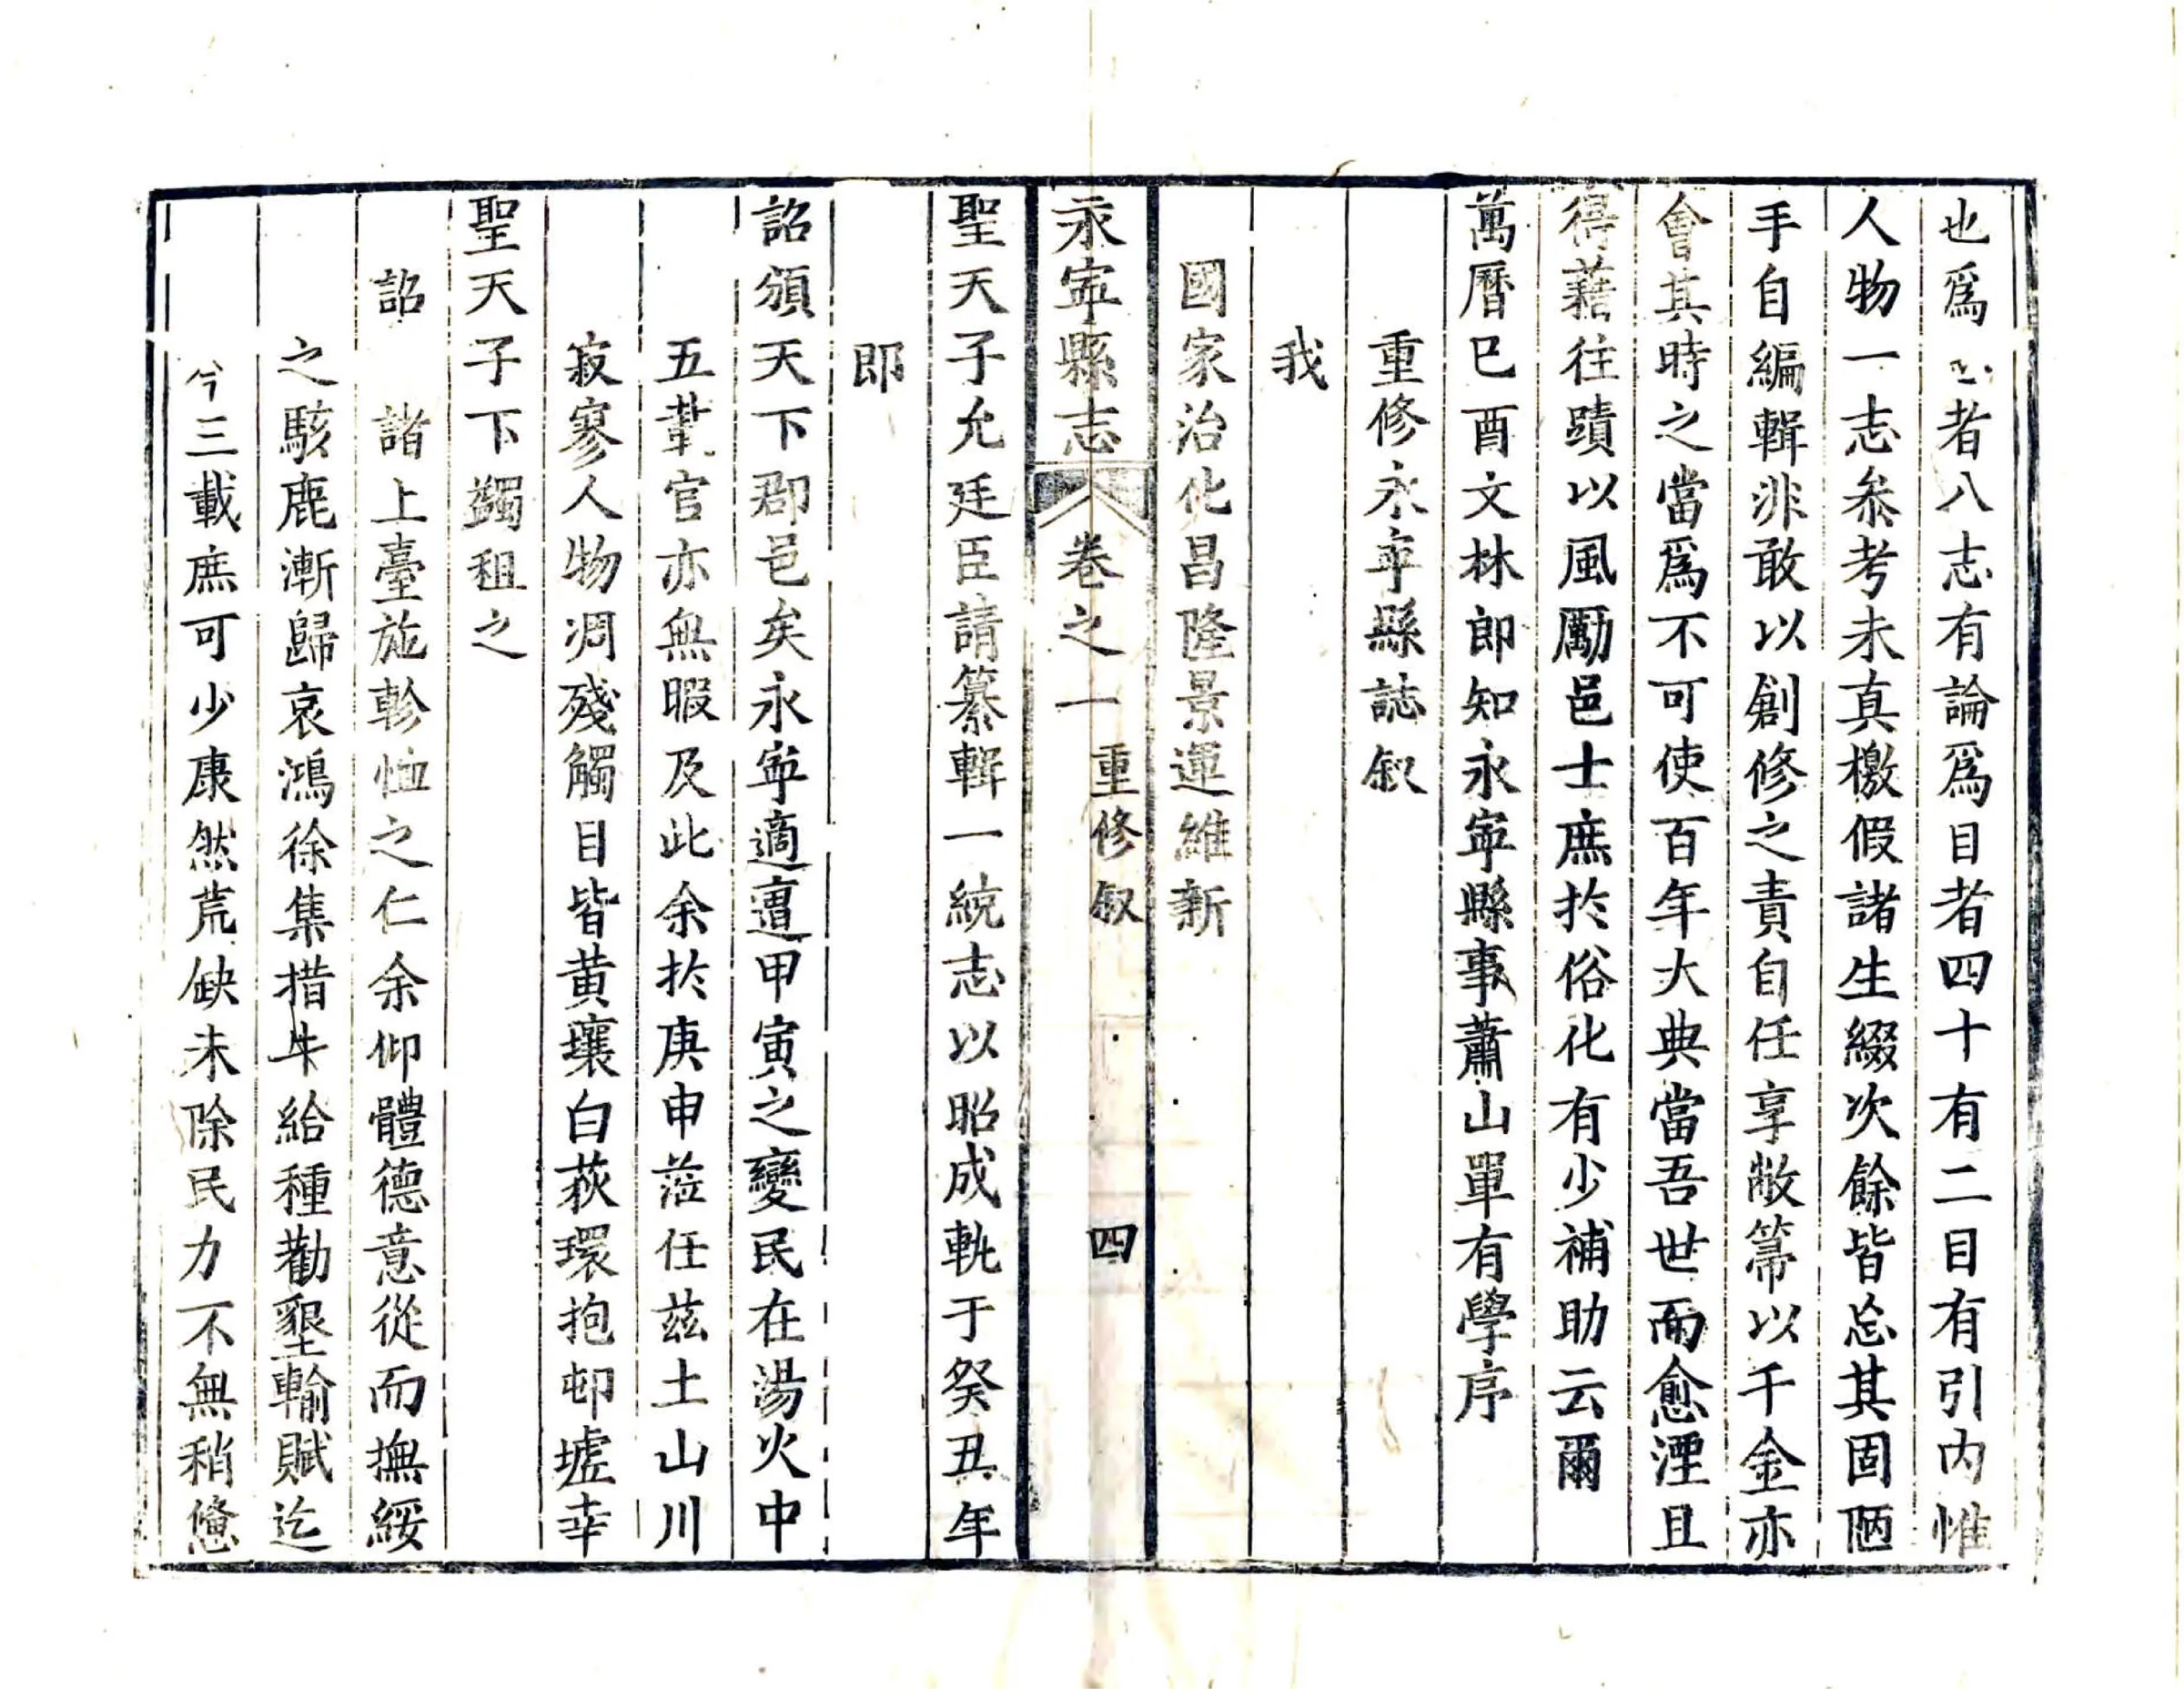 也爲志者八志有論爲目者四十有二目有引内惟
人物一志叅考未真檄假諸生綴次餘皆忘其固陋
手自編輯非敢以創修之責自任享敝箒以千金亦
會其時之當爲不可使百年大典當吾世而愈湮且
得藉往蹟以風勵邑士庶於俗化有少補助云爾
萬曆已酉文林郎知永寕縣事蕭山單有學序
重修永寕縣誌叙
我
國家治化昌隆景運維新
永寕縣志
卷之一
重修叙
四
聖天子允廷臣請纂輯一統志以昭成軌于癸丑年
即
詔頒天下郡邑矣永寕適遭甲寅之變民在湯火中
五載官亦無暇及此余於庚申蒞任兹土山川
寂寥人物凋殘觸目皆黄壤白荻環抱邨墟幸
聖天子下蠲租之
詔諸上臺施軫恤之仁余仰體德意從而撫綏
之駭鹿漸歸哀鴻徐集措牛給種勸墾輸賦迄
今三載庶可少康然荒缺未除民力不無稍憊